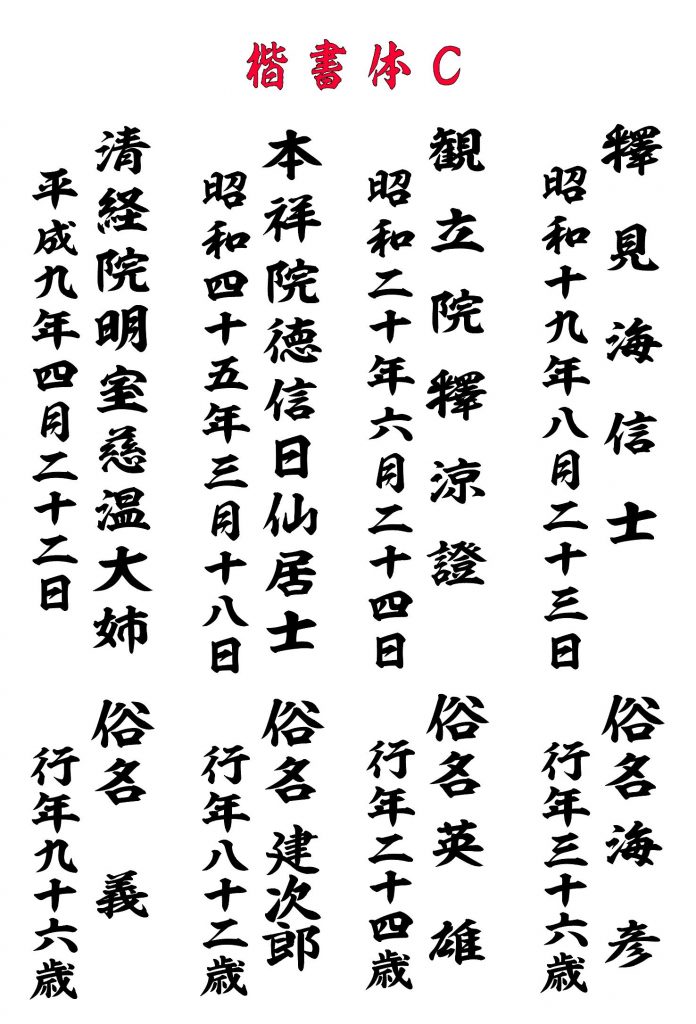 楷書体C
釋見海信士
俗名海彦
昭和十九年八月二十三日
行年三十六歳
観立院釋涼證
俗名英雄
昭和二十年六月二十四日
行年二十四歳
本祥院徳信日仙居士
俗名建次郎
昭和四十五年三月十八日
行年八十二歳
清経院明室慈温大姉
俗名義
平成九年四月二十二日
行年九十六歳